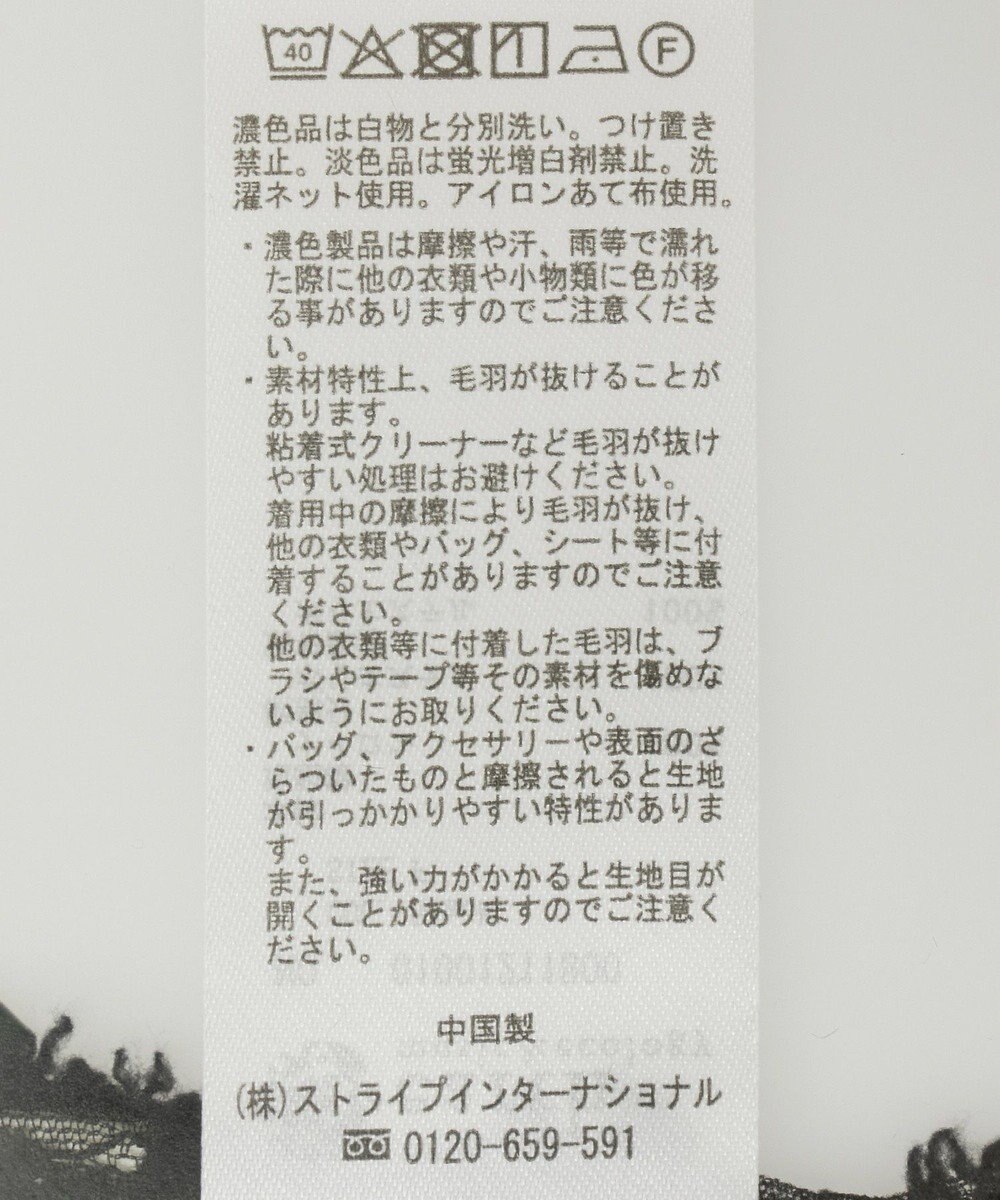 40 F
濃色品は白物と分別洗い。つけ置き
禁止。淡色品は蛍光増白剤禁止。洗
濯ネット使用。アイロンあて布使用。
・濃色製品は摩擦や汗、雨等で濡れ
た際に他の衣類や小物類に色が移
る事がありますのでご注意くださ
い。
・素材特性上、毛羽が抜けることが
あります。
粘着式クリーナーなど毛羽が抜け
やすい処理はお避けください。
着用中の摩擦により毛羽が抜け、
他の衣類やバッグ、シート等に付
着することがありますのでご注意
ください。
他の衣類等に付着した毛羽は、ブ
ラシやテープ等その素材を傷めな
いようにお取りください。
・バッグ、アクセサリーや表面のざ
らついたものと摩擦されると生地
が引っかかりやすい特性がありま
す。
また、強い力がかかると生地目が
開くことがありますのでご注意く
ださい。
中国製
(株)ストライプインターナショナル
0120-659-591